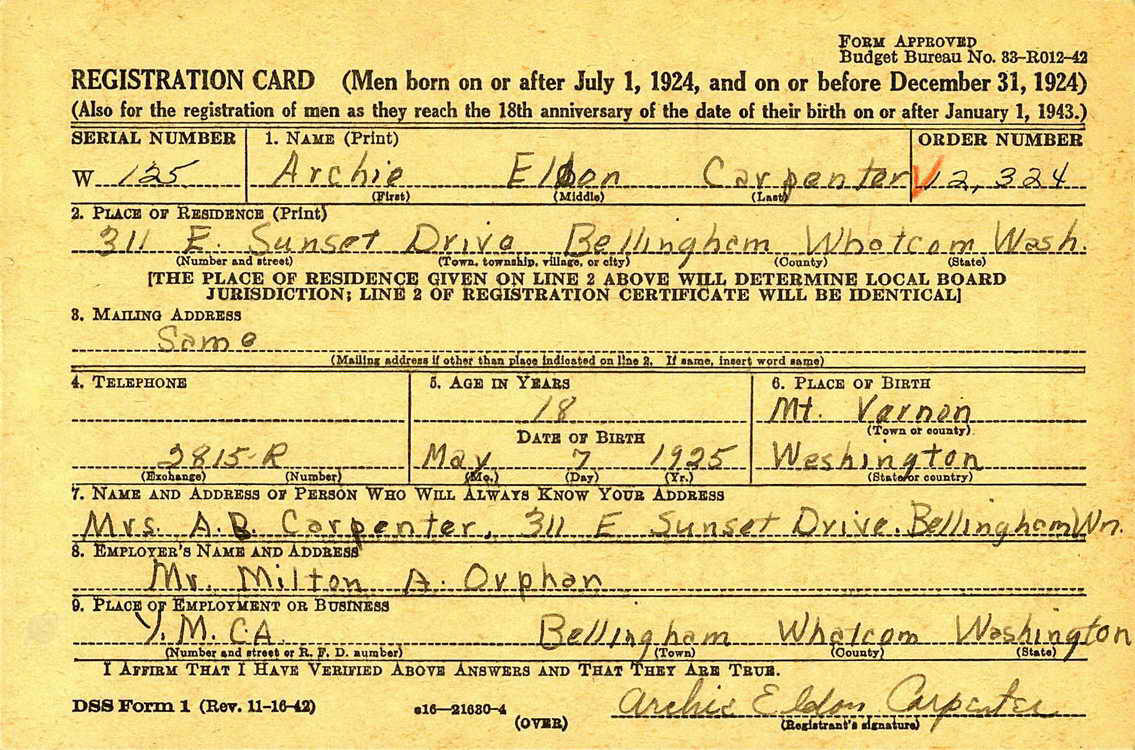 FORM APPROVED
Budget Bureau No. 33-R012-42
REGISTRATION CARD (Men born on or after July 1, 1924, and on or before December 31, 1924)
(Also for the registration of men as they reach the 18th anniversary of the date of their birth on or after January 1, 1943.)
SERIAL NUMBER 1. NAME (Print) ORDER NUMBER
W 125 Archie Eldon Carpenter 12,324
(First) (Middle) (Last)
2. PLACE OF RESIDENCE (Print)
311 E. Sunset Drive Bellingham Whatcom Wash.
(Number and street) (Town, township, village, or city) (County) (State)
[THE PLACE OF RESIDENCE GIVEN ON LINE 2 ABOVE WILL DETERMINE LOCAL BOARD
JURISDICTION; LINE 2 OF REGISTRATION CERTIFICATE WILL BE IDENTICAL]
3. MAILING ADDRESS
Same
(Mailing address if other than place indicated on line 2. If same, insert word same)
4. TELEPHONE 5. AGE IN YEARS 6. PLACE OF BIRTH
18 Mt. Vernon
DATE OF BIRTH (Town or county)
2815-R May 7 1925 Washington
(Exchange) (Number) (Mo.) (Day) (Yr.) (State or country)
7. NAME AND ADDRESS OF PERSON WHO WILL ALWAYS KNOW YOUR ADDRESS
Mrs. A.B. Carpenter, 311 E Sunset Drive. Bellingham Wn.
8. EMPLOYER'S NAME AND ADDRESS
Mr. Milton A. Orphan
9. PLACE OF EMPLOYMENT OR BUSINESS
Y.M.CA. Bellingham Whatcom Washington
(Number and street or R. F. D. number) (Town) (County) (State)
I AFFIRM THAT I HAVE VERIFIED ABOVE ANSWERS AND THAT THEY ARE TRUE.
DSS Form 1 (Rev. 11-16-42) e16—21630-4 Archie Eldon Carpenter
(OVER) (Registrant's signature)